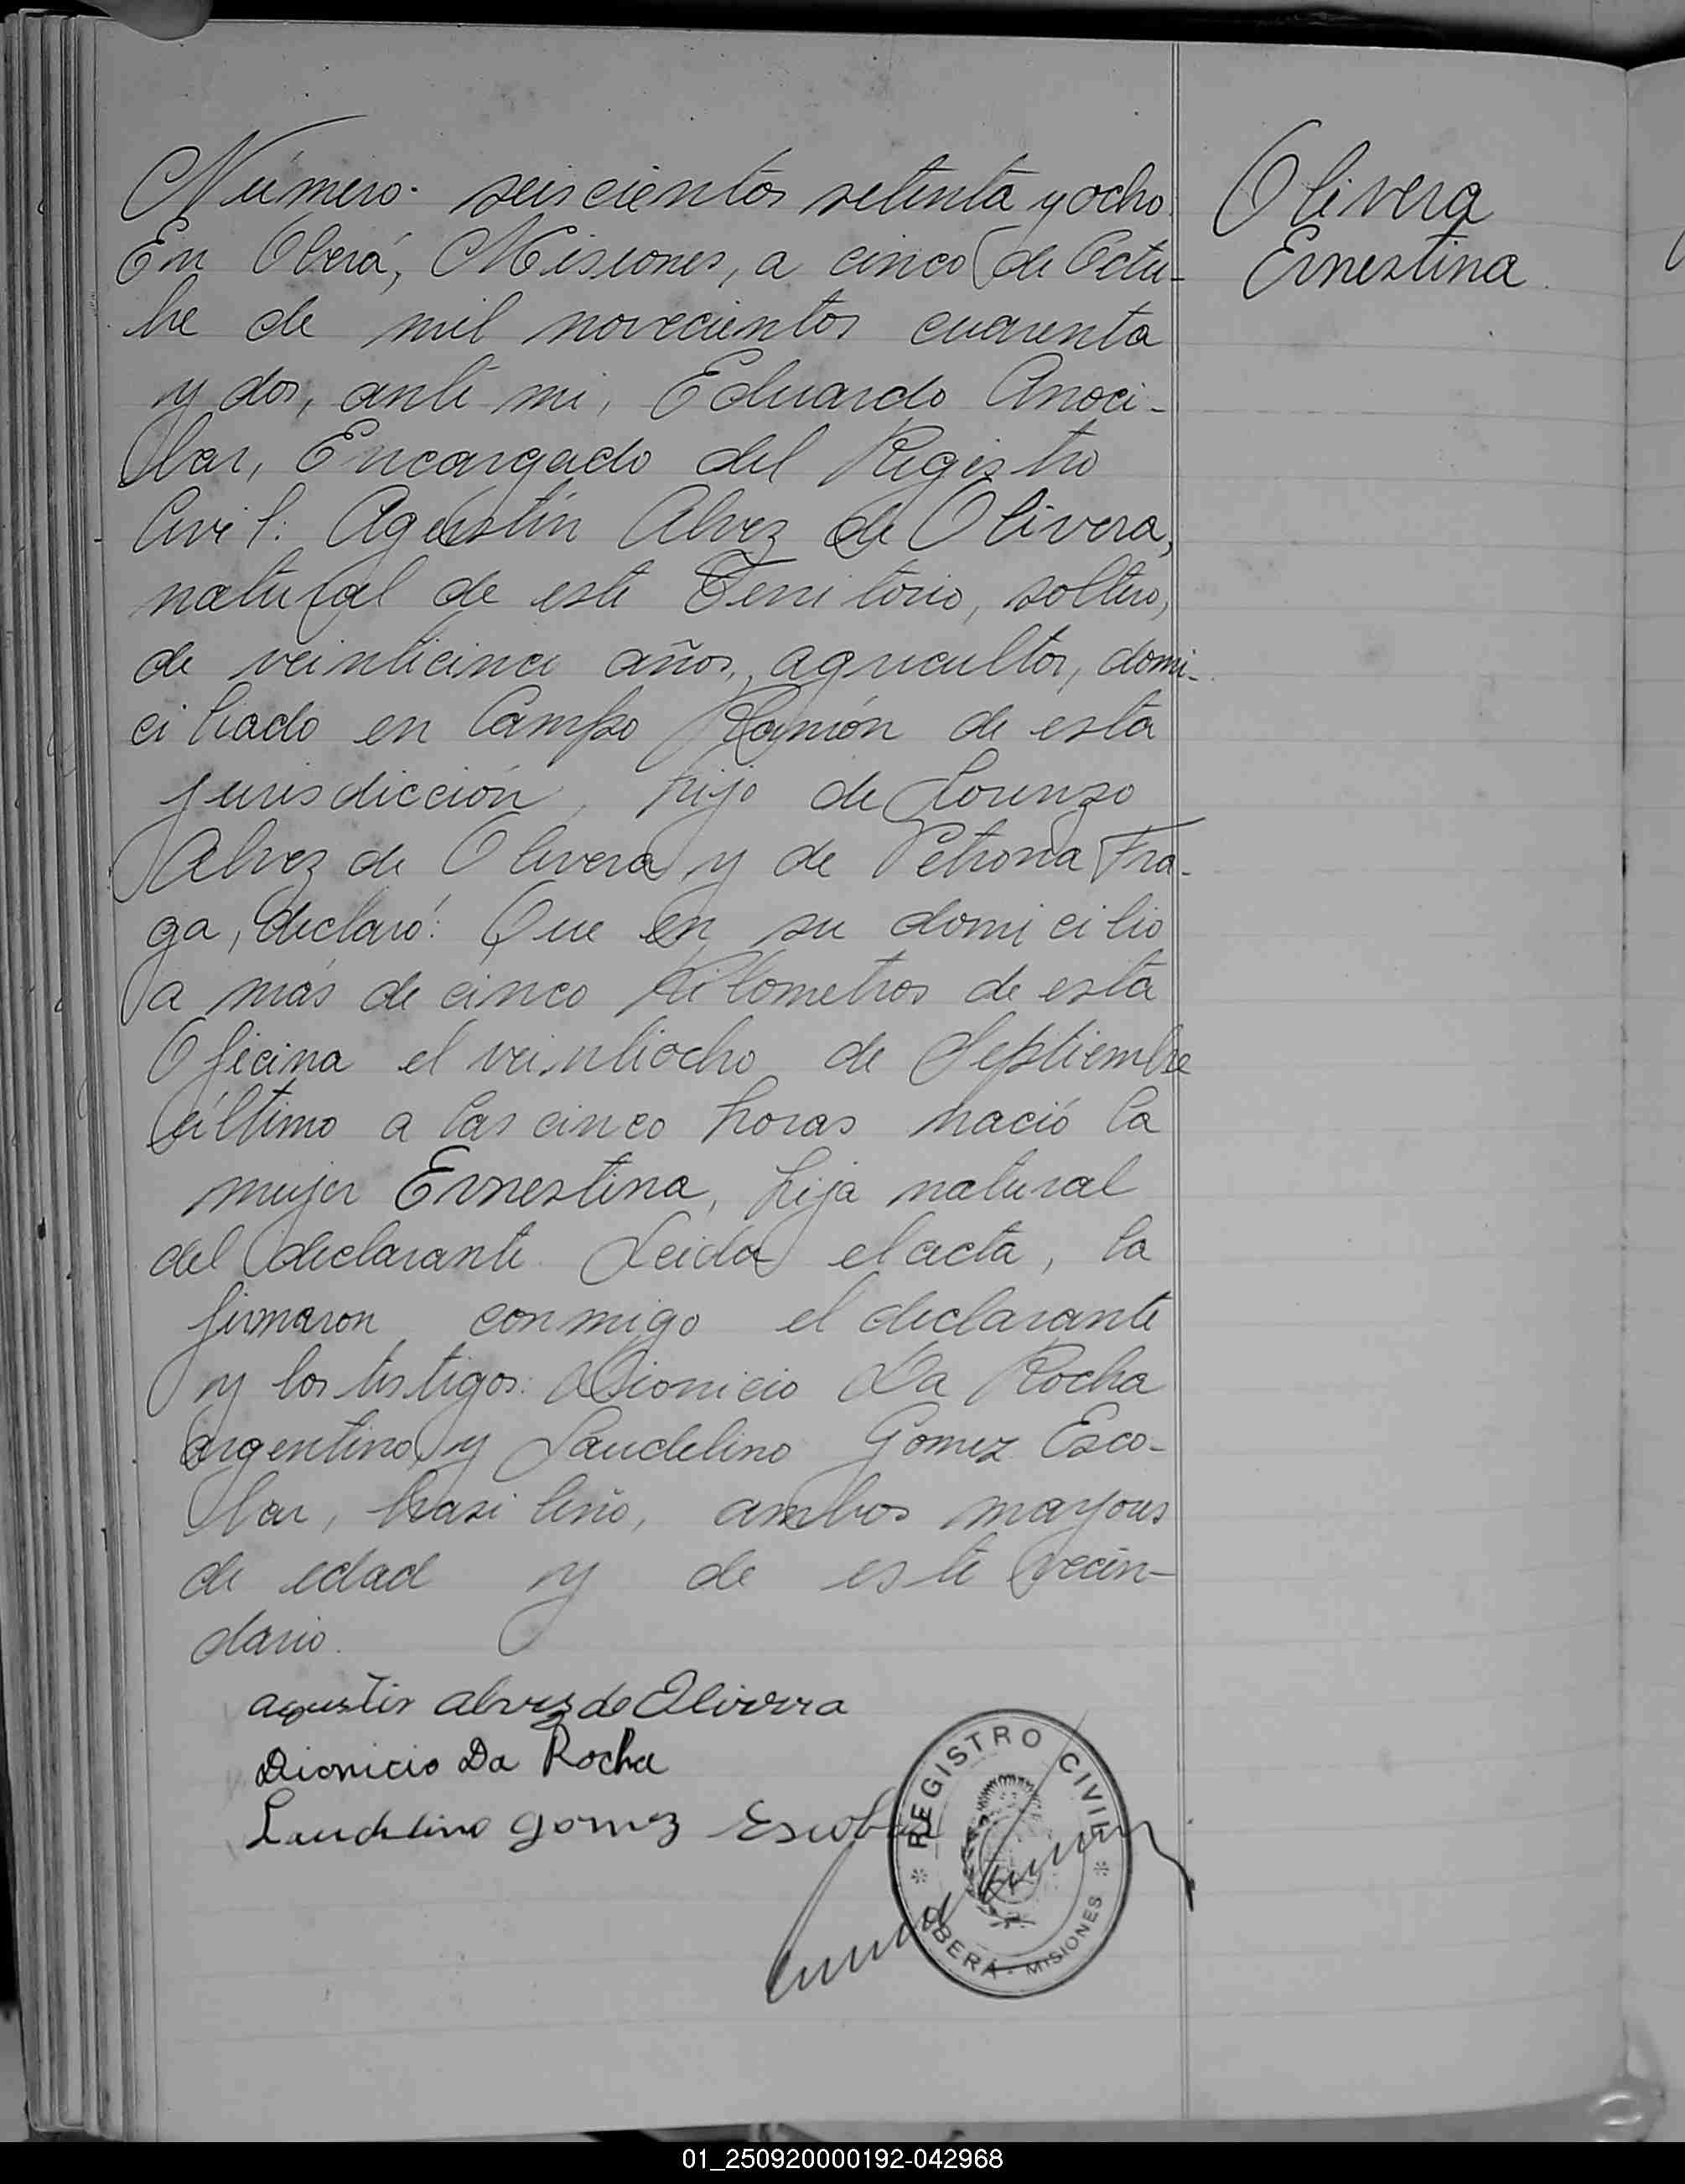 Número seiscientos setenta y ocho
En Oberá, Misiones, a cinco de Octu-
bre de mil novecientos cuarenta
y dos, ante mi, Eduardo Anoci-
bar, Encargado del Registro
Civil: Agustín Alvez de Olivera,
natural de este Territorio, soltero,
de veinticinco años, agricultor, domi-
ciliado en Campo Ramón de esta
jurisdicción, hijo de Lorenzo
Alvez de Olivera y de Petrona Fra-
ga, declaró: Que en su domicilio
a más de cinco kilometros de esta
Oficina el veintiocho de Septiembre
último a las cinco horas nació la
mujer Ernestina, hija natural
del declarante. Leida el acta, la
firmaron conmigo el declarante
y los testigos: Dionicio Da Rocha
argentino y Laudelino Gomez Esco-
bar, brasileño, ambos mayores
de edad y de este vecin-
dario.
Olivera
Ernestina
agustin alvez de Olivera
Dionicio Da Rocha
Laudelino gomez Escobar
REGISTRO CIVIL
OBERÁ - MISIONES
01_250920000192-042968